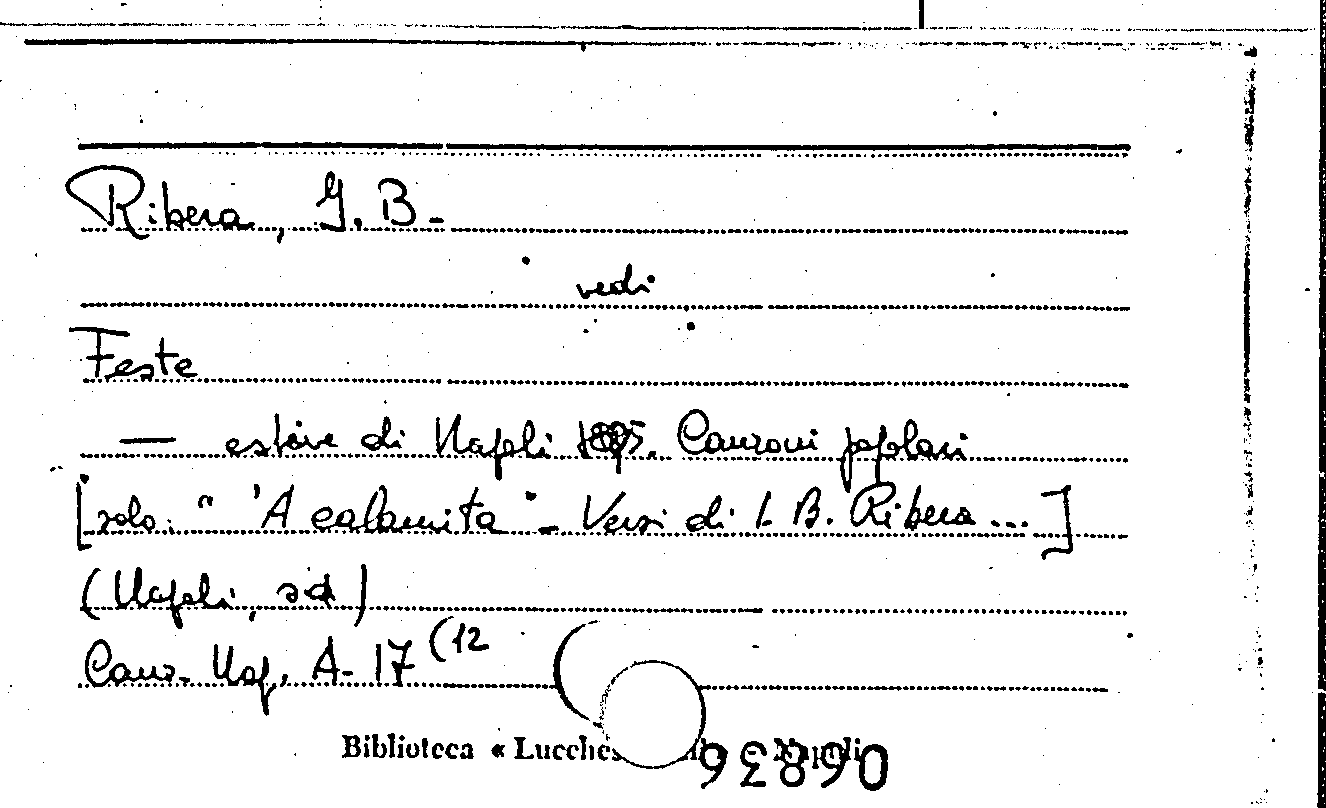 Ribera, G. B. -
vedi
Feste
— estive di Napoli 1895. Canzoni popolari
[solo: " 'A calamita " - Versi di I. B. Ribera ... ]
(Napoli, sd)
Canz. Nap. A-17 (12
Biblioteca « Lucchesi Napoli